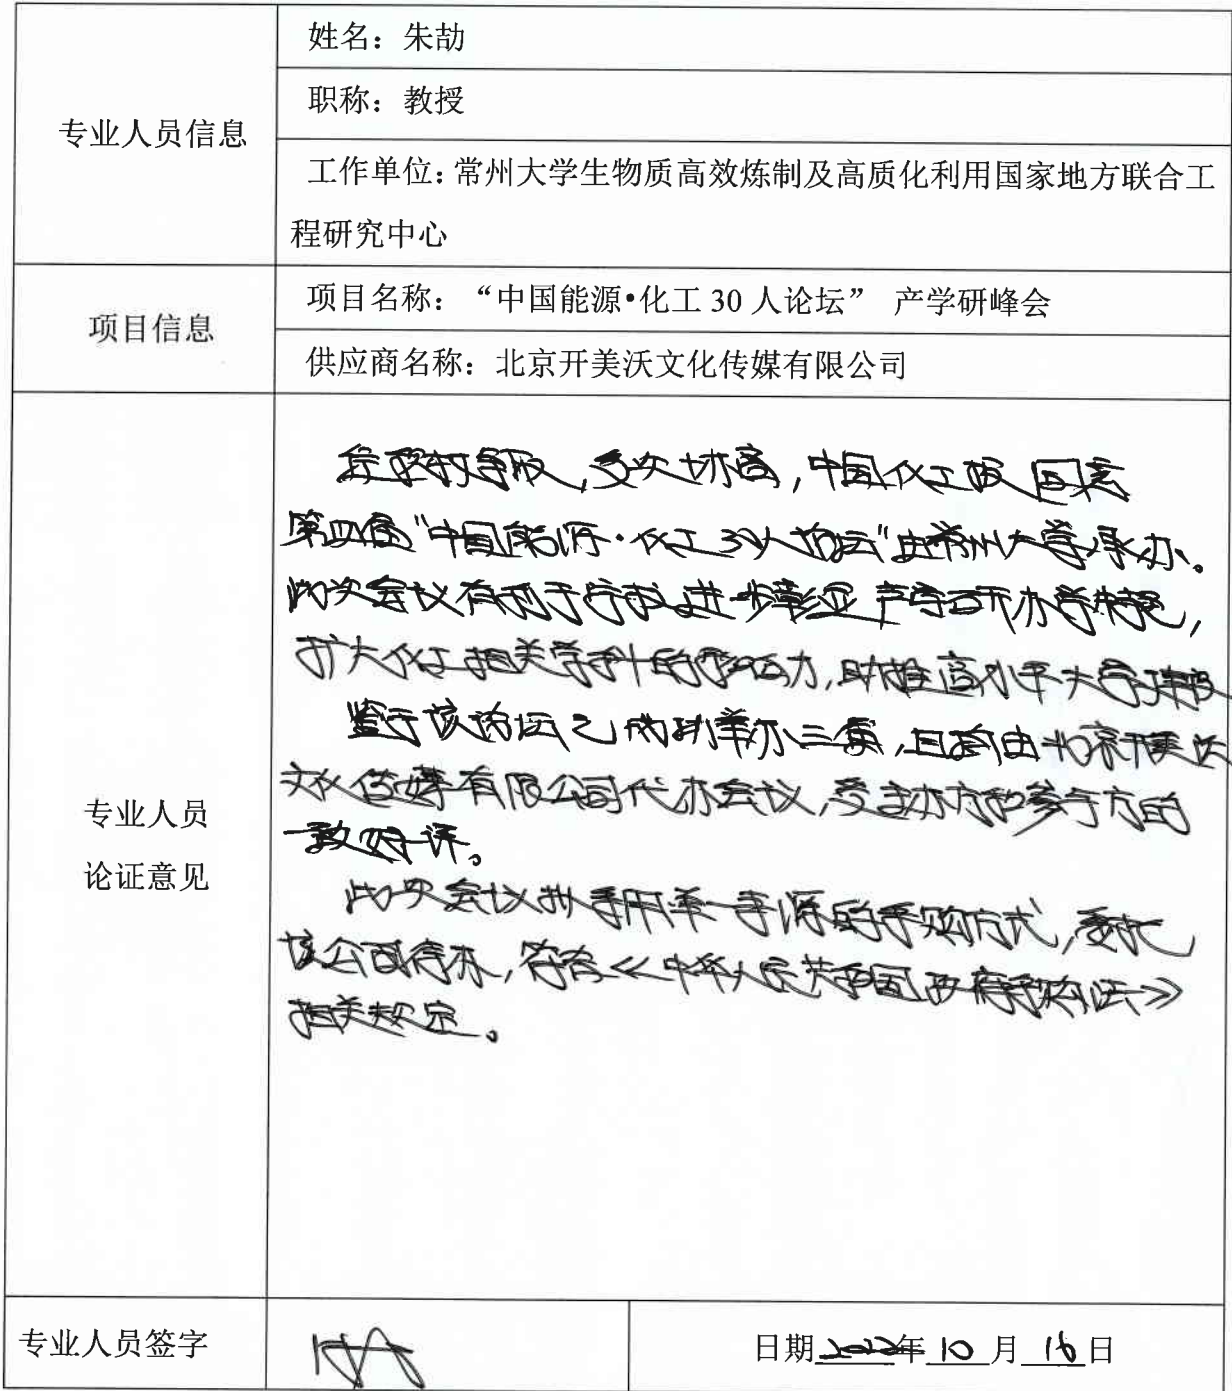 专业人员信息
姓名：朱劼
职称：教授
工作单位：常州大学生物质高效炼制及高质化利用国家地方联合工
程研究中心
项目信息
项目名称：“中国能源•化工 30 人论坛” 产学研峰会
供应商名称：北京开美沃文化传媒有限公司
专业人员
论证意见
争取，多次协商，中国化工报同意
第四届“中国能源·化工30人论坛”由常州大学承办。
此次会议有利于学校进一步彰显产学研办学特色，
扩大化工相关学科的影响力，助推高水平大学建设
鉴于该论坛已成功举办三届，且前由北京开美沃
文化传媒有限公司代办会议，受主办方和参与方的
一致好评。
此次会议拟采用单一来源的采购方式，委托
该公司承办，符合《中华人民共和国政府采购法》
相关规定。
专业人员签字
日期2022年 10 月 16 日